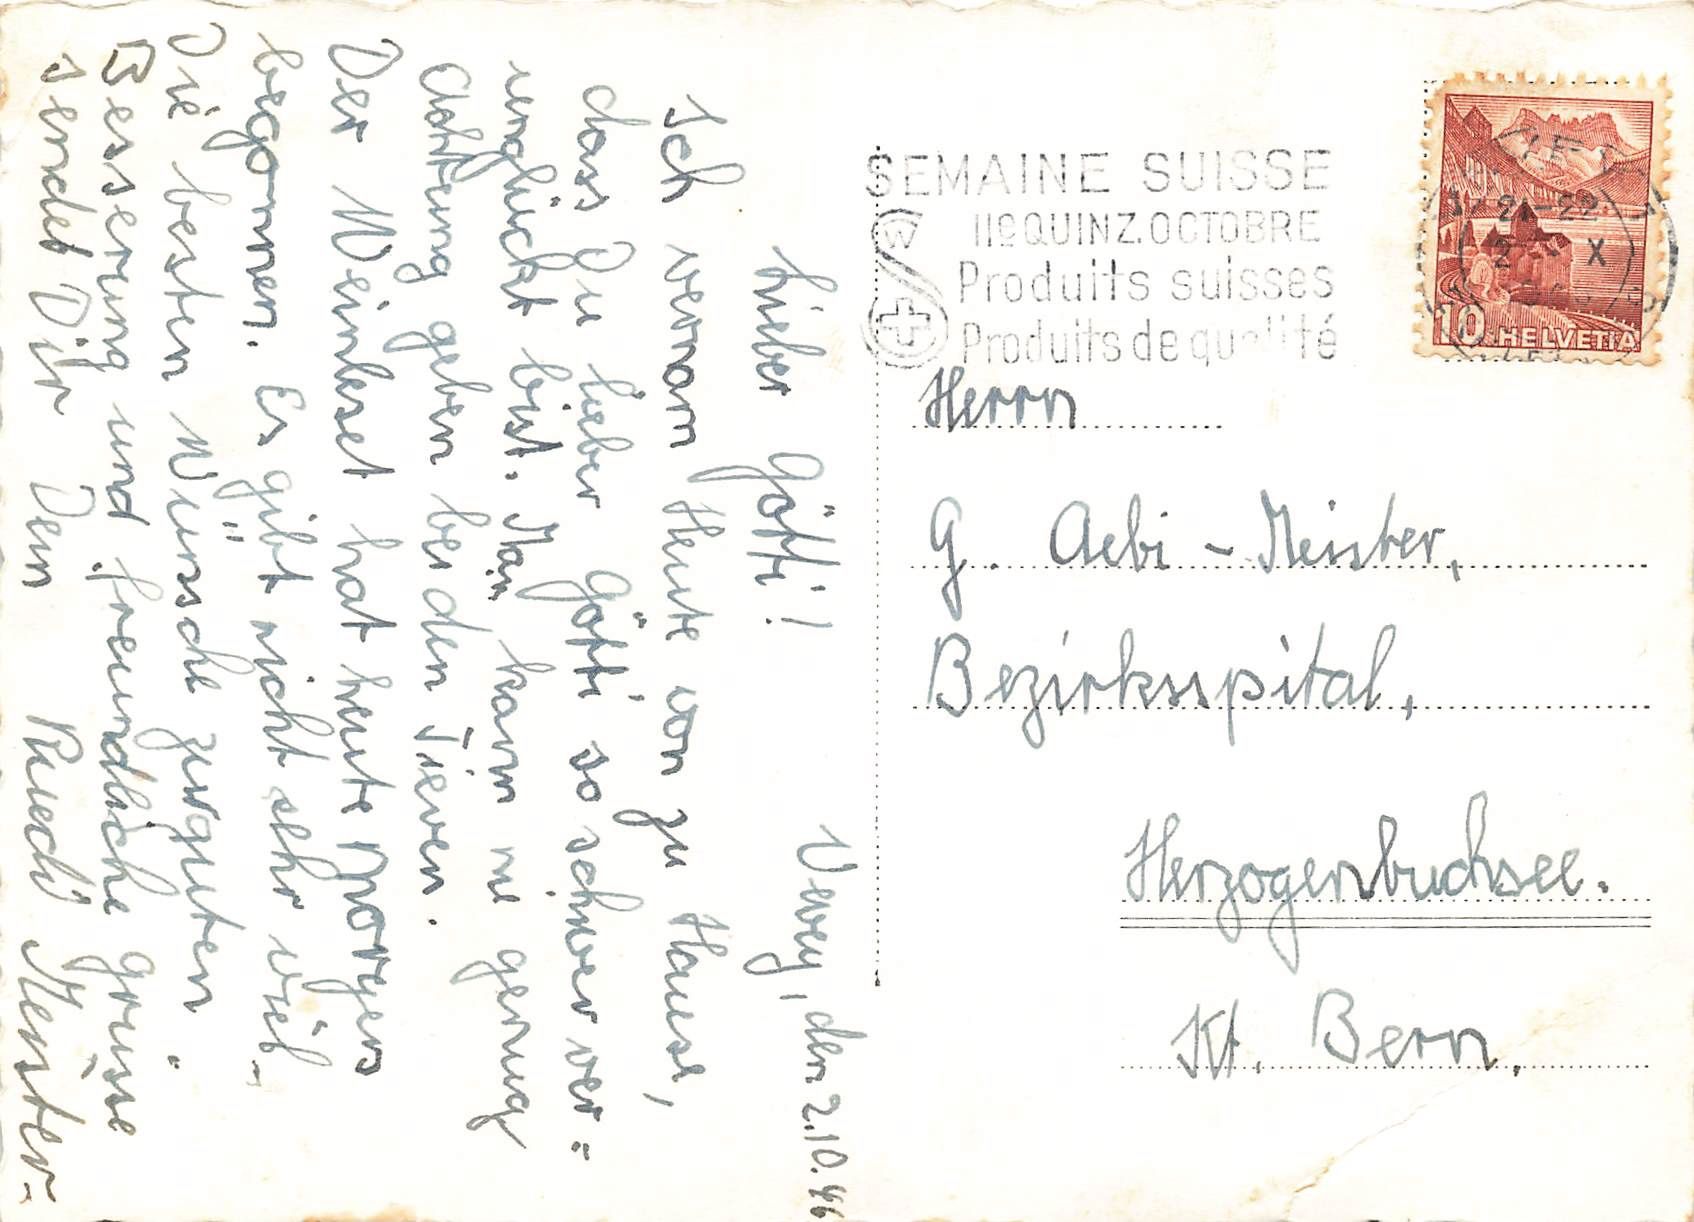 Vevey, den 2.10.46
Lieber Götti!
Ich vernam Heute von zu Hause,
dass Du lieber Götti so schwer ver=
unglückt bist. Man kann nie genug
Achtung geben bei den Tieren.
Der Weinleset hat heute Morgens
begonnen. Es gibt nicht sehr viel.
Die besten Wünsche zur guten
Besserung und freundliche grüsse
sendet Dir Dein Ruedi Meister.
SEMAINE SUISSE
IIe QUINZ. OCTOBRE
Produits suisses
Produits de qualité
21-22
2 X
10 HELVETIA
Herrn
G. Aebi - Meister,
Bezirksspital,
Herzogenbuchsee.
Kt. Bern.